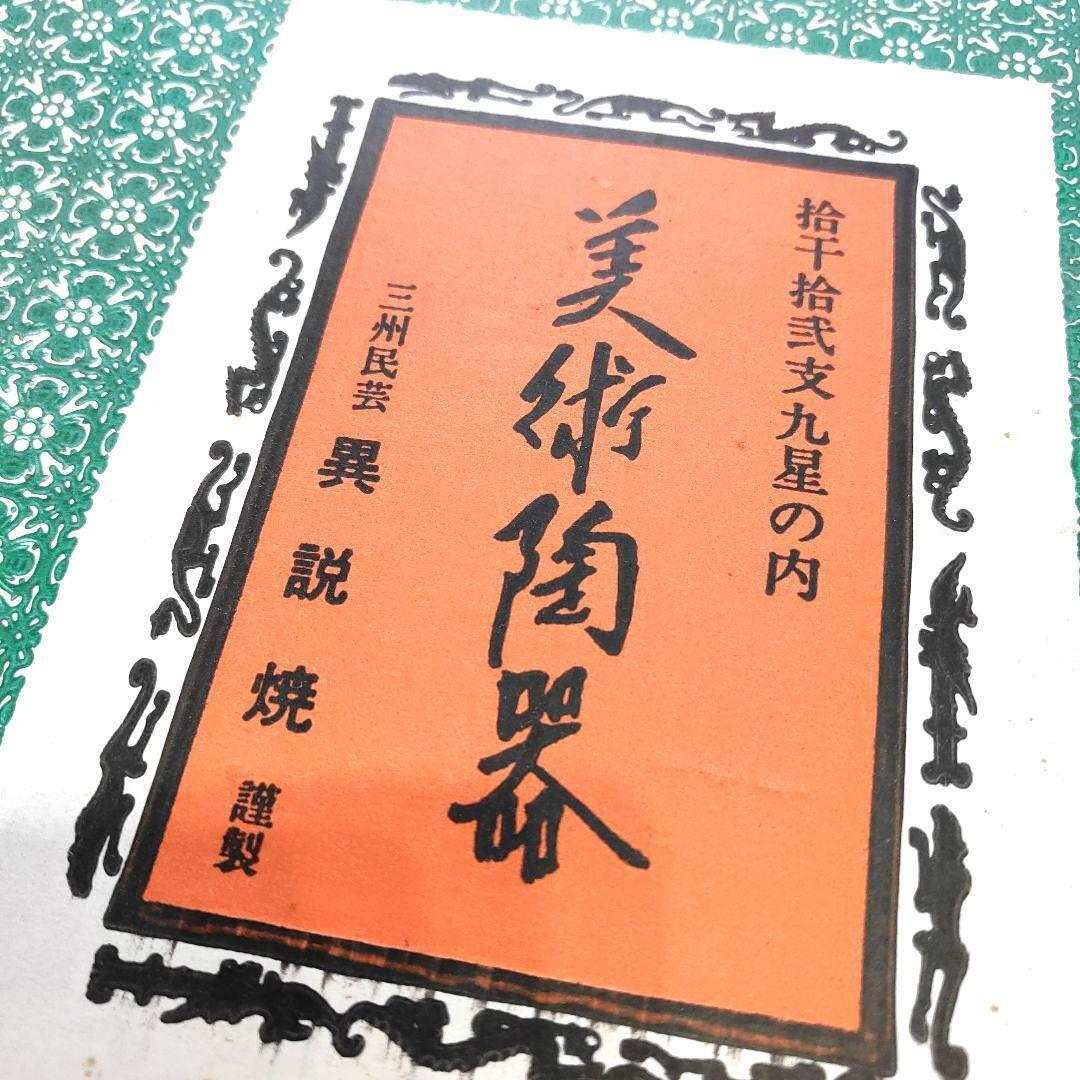 拾干拾弐支九星の内
美術陶器
三州民芸 異説焼 謹製